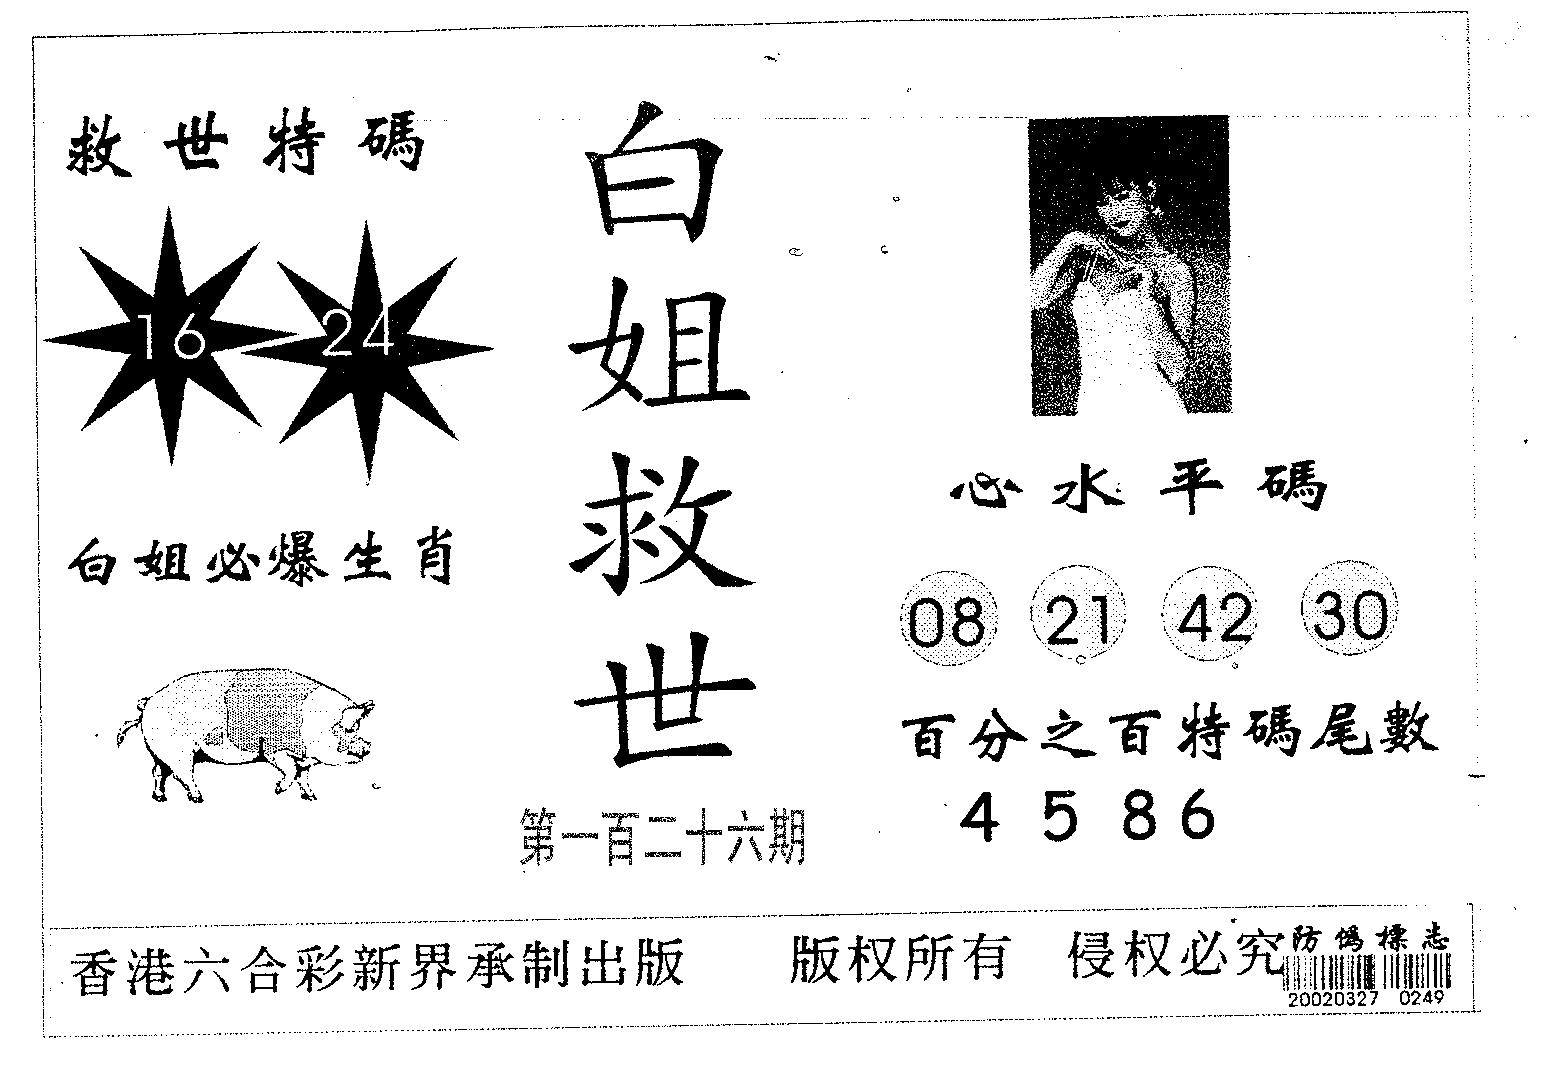 救世特碼
16 24
白姐必爆生肖
白姐救世
第一百二十六期
心水平碼
08 21 42 30
百分之百特碼尾數
4 5 8 6
香港六合彩新界承制出版 版权所有 侵权必究
防偽標志
20020327 0249